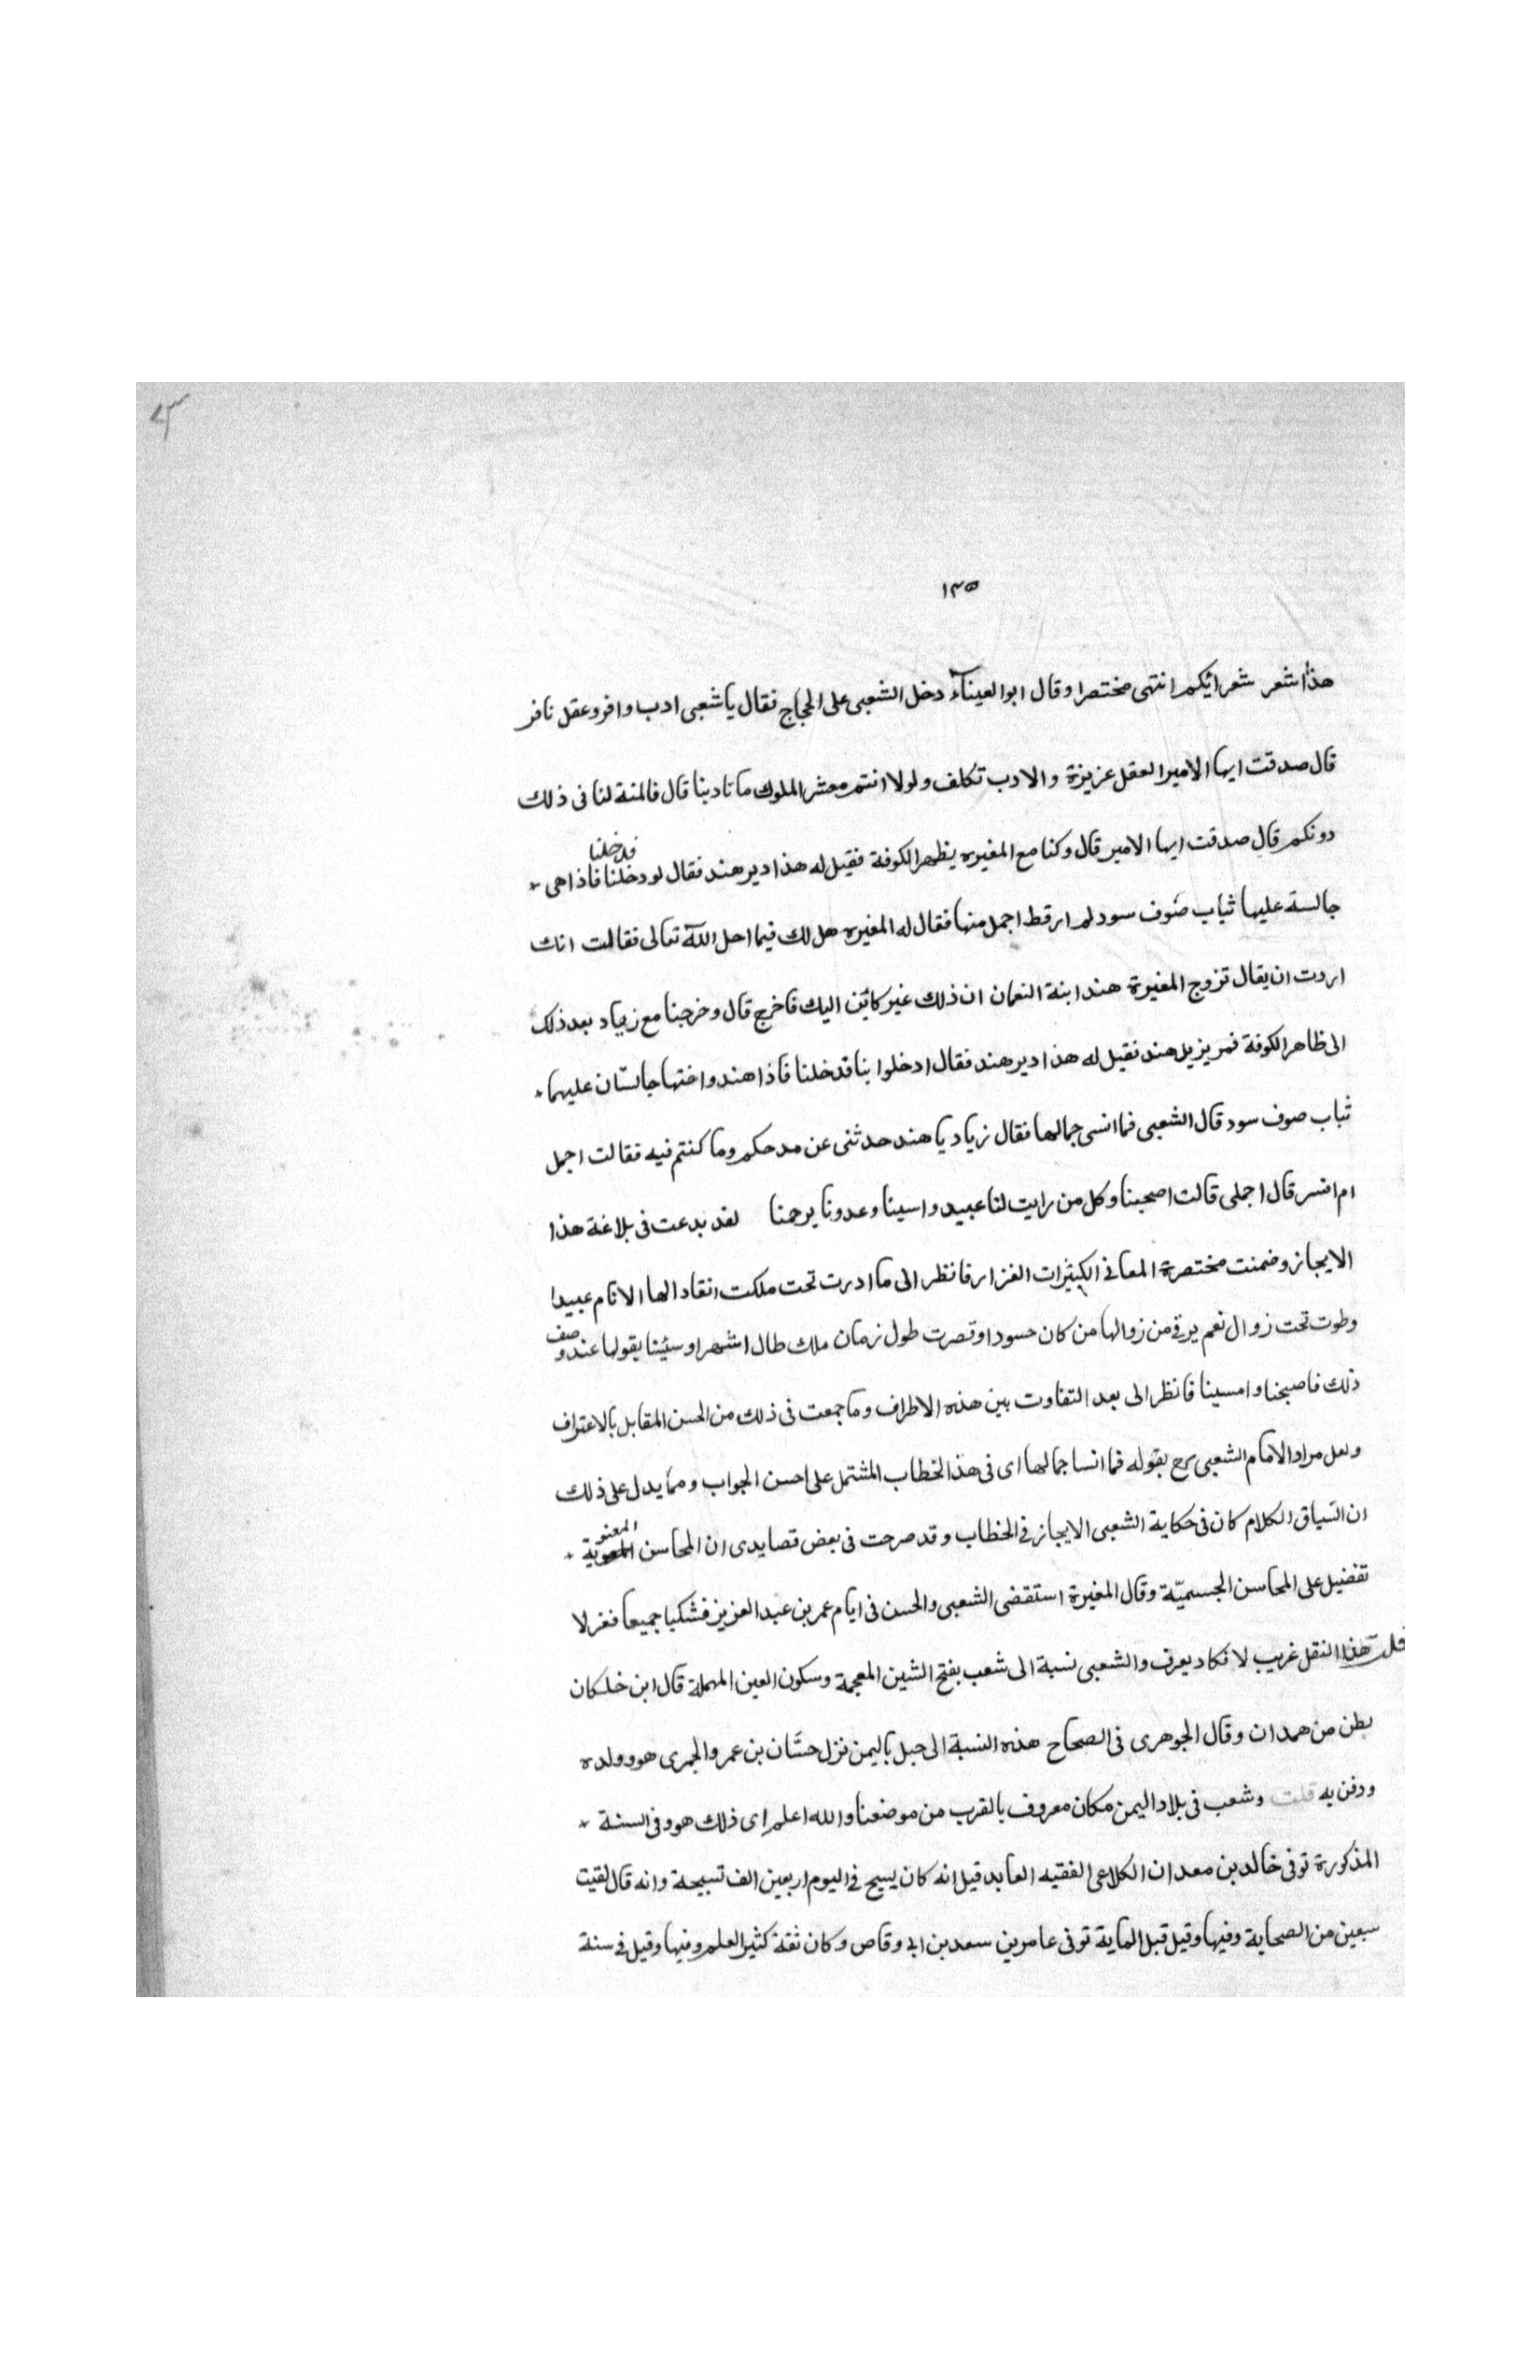 ١٣٥
هذا شعر شعرائيكم انتهى مختصرا وقال ابو العيناء دخل الشعبى على الحجاج فقال يا شعبى ادب وافر وعقل نافر
قال صدقت ايها الامير العقل عزيزة والادب تكلف ولولا انتم معشر الملوك ما تادبنا قال فالمنة لنا فى ذلك
دونكم قال صدقت ايها الامير قال وكنا مع المغيره بظهر الكوفة فقيل له هذا دير هند فقال لو دخلنا فدخلنا فاذا هى
جالسة عليها ثياب صوف سود لم ار قط اجمل منها فقال له المغيره هل لك فيما احل الله تعالى فقالت انك
اردت ان يقال تزوج المغيرة هند ابنة النعمان ان ذلك غير كائن اليك فاخرج قال وخرجنا مع زياد بعد ذلك
الى ظاهر الكوفة فمر بدير هند فقيل له هذا دير هند فقال ادخلوا بنا فدخلنا فاذا هند واختها جالستان عليهما
ثياب صوف سود قال الشعبى فما انسى جمالها فقال زياد يا هند حدثنى عن مدحكم وما كنتم فيه فقالت اجمل
ام افسر قال اجملى قالت اصبحنا وكل من رايت لنا عبيد وامسينا وعدونا يرحمنا لقد بدعت فى بلاغة هذا
الايجاز وضمنت مختصرة المعانى الكثيرات الغزار فانظر الى ما ادرت تحت ملكت انقاد الها الانام عبيدا
وطوت تحت زوال نعم يرقى من زوالها من كان حسودا وقصرت طول زمان ملك طال اشهرا وسنينا بقولها عند وصف
ذلك فاصبحنا وامسينا فانظر الى بعد التفاوت بين هذه الاطراف وما جمعت فى ذلك من الحسن المقابل بالاعتراف
ولعل مراد الامام الشعبى رح بقوله فما انسا جمالها اى فى هذا الخطاب المشتمل على احسن الجواب ومما يدل على ذلك
ان السياق الكلام كان فى حكاية الشعبى الايجاز فى الخطاب وقد صرحت فى بعض قصايدى ان المحاسن المعنوية
تفضيل على المحاسن الجسميّة وقال المغيرة استقضى الشعبى والحسن فى ايام عمر بن عبد العزيز فشكيا جميعا فعزلا
قلت هذا النقل غريب لا فكاد يعرف والشعبى نسبة الى شعب بفتح الشين المعجمة وسكون العين المهملة قال ابن خلكان
بطن من همدان وقال الجوهرى فى الصحاح هذه النسبة الى جبل باليمن نزل حسّان بن عمر والحميرى هو وولده
ودفن به قلت وشعب فى بلاد اليمن مكان معروف بالقرب من موضعنا والله اعلم اى ذلك هو وفى السنة
المذكورة توفى خالد بن معدان الكلاعى الفقيه العابد قيل انه كان يسبح فى اليوم اربعين الف تسبيحة وانه قال لقيت
سبعين من الصحابة وفيها وقيل قبل الماية توفى عامر بن سعد بن ابى وقاص وكان ثقة كثير العلم وفيها وقيل فى سنة